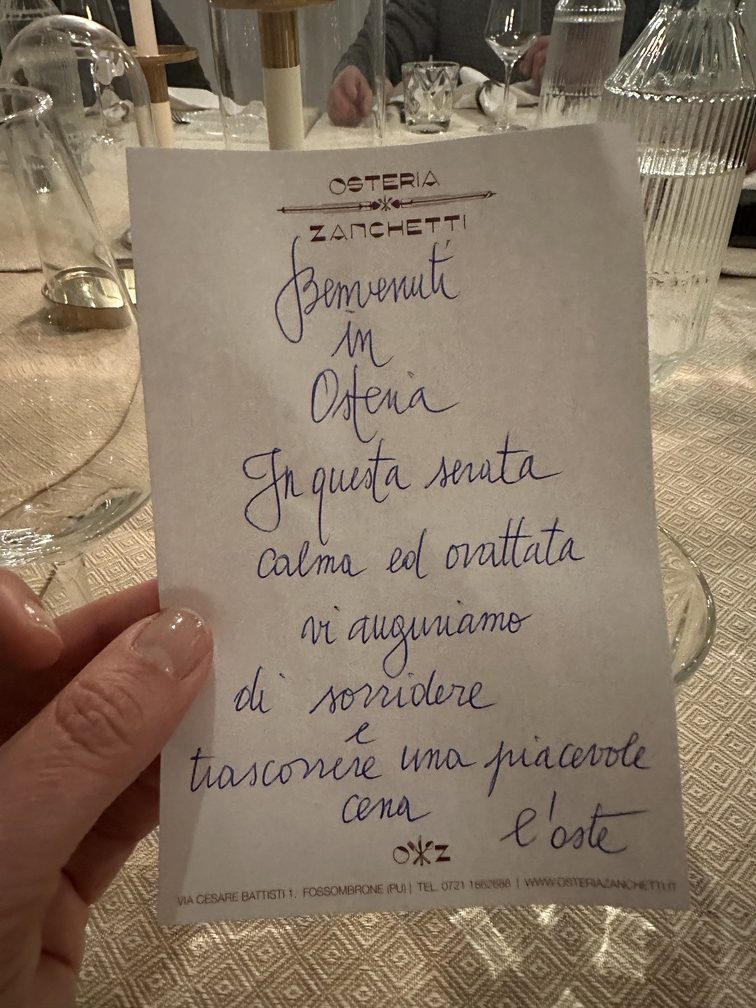 OSTERIA
ZANCHETTI
Benvenuti
in
Osteria
In questa serata
calma ed ovattata
vi auguriamo
di sorridere
e
trascorrere una piacevole
cena
l'oste
OZ
VIA CESARE BATTISTI 1, FOSSOMBRONE (PU) | TEL. 0721 1862688 | WWW.OSTERIAZANCHETTI.IT